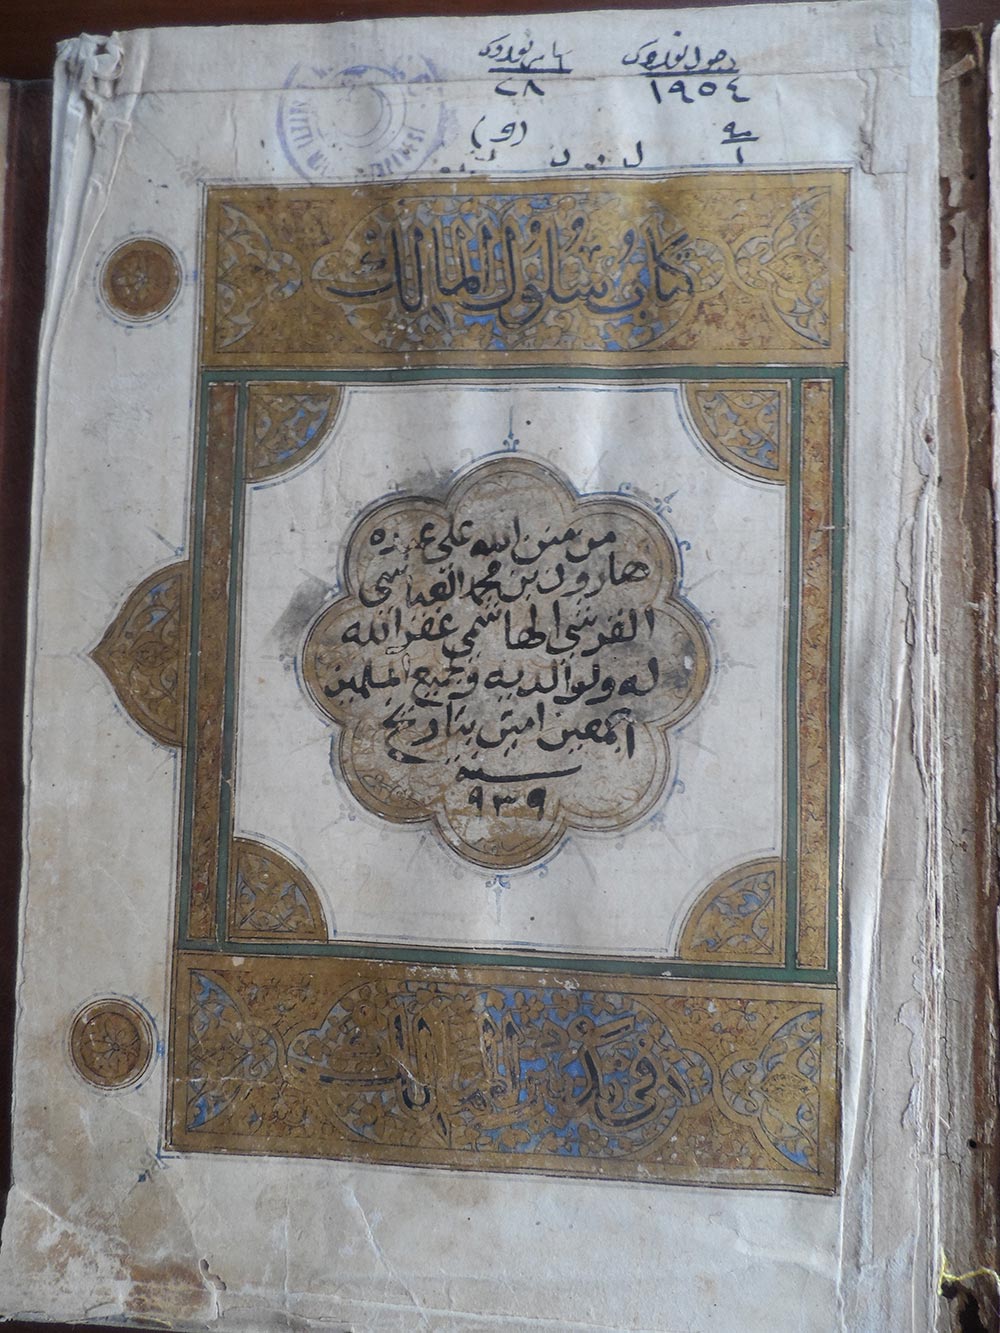 دخول نومروسى
١٩٥٤
خاص نومروسى
٢٨
كتاب سلوك المالك
من منن الله على عبده
هارون بن محمد العباسى
القرشى الهاشمى غفر الله
له ولوالديه وجميع المسلمين
اجمعين امين بتاريخ
سنه
٩٣٩
فى تدبير الممالك